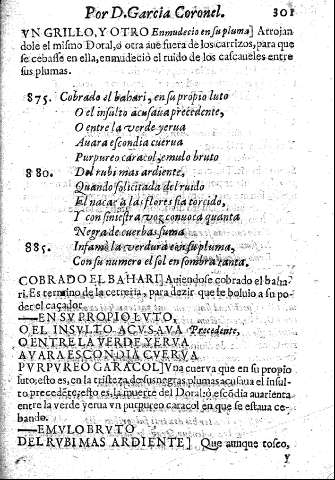 Por D. Garcia Coronel. 301
VN GRILLO, Y OTRO Enmudecio en su pluma] Arrojan
dole el mismo Doral, ò otra aue fuera de los carrizos, para que
se cebasse en ella, enmudeciò el ruido de los cascaueles entre
sus plumas.
875. Cobrado el bahari, en su propio luto
O el insulto acusaua precedente,
O entre la verde yerua
Auara escondia cuerua
Purpureo caracol, emulo bruto
880. Del rubi mas ardiente,
Quando solicitada del ruido
El nacar à las flores fia torcido,
Y con siniestra voz conuoca quanta
Negra de cueruas suma
885. Infamò la verdura con su pluma,
Con su numero el sol en sombra tanta.
COBRADO EL BAHARI] Auiendose cobrado el baha-
ri. Es termino de la cetreria, para dezir que le boluio a su po-
der el caçador.
—EN SV PROPIO LVTO,
O EL INSVLTO ACVSAVA Precedente,
O ENTRE LA VERDE YERVA
AVARA ESCONDIA CVERVA
PVRPVREO CARACOL] Vna cuerua que en su propio
luto, esto es, en la tristeza de sus negras plumas acusaua el insul-
to precedēte, esto es, la muerte del Doral: ò escōdia auarienta
entre la verde yerua vn purpureo caracol en que se estaua ce-
bando.
—EMVLO BRVTO
DEL RVBI MAS ARDIENTE] Que aunque tosco,
Y